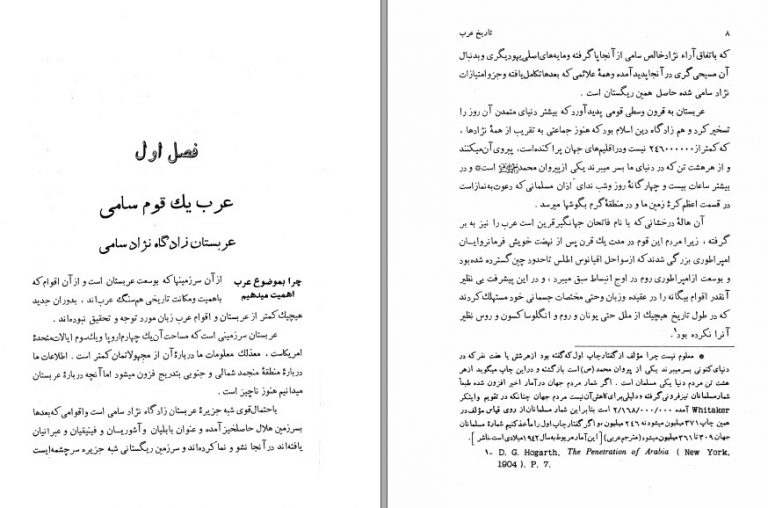 فصل اول
عرب یك قوم سامی
عربستان زادگاه نژاد سامی
چرا بموضوع عرب
اهمیت میدهیم
از آن سرزمینها که بوسعت عربستان است و از آن اقوام که
باهمیت ومکانت تاریخی همسنگ عرب‌اند، بدوران جدید
هیچیك کمتر از عربستان و اقوام عرب زبان مورد توجه و تحقیق نبوده‌اند .
عربستان سرزمینی است که مساحت آن یك چهارم اروپا و یك‌سوم ایالات‌متحدهٔ
امریکاست ، معذلك معلومات ما دربارهٔ آن از مجهولاتمان کمتر است . اطلاعات ما
دربارهٔ منطقهٔ منجمد شمالی و جنوبی بتدریج فزون میشود اما آنچه دربارهٔ عربستان
میدانیم هنوز ناچیز است .
باحتمال‌قوی شبه جزیرهٔ عربستان زادگاه نژاد سامی است واقوامی که‌بعدها
بسرزمین هلال حاصلخیز آمده و عنوان بابلیان و آشوریان و فینیقیان و عبرانیان
یافته‌اند در آنجا نشو و نما کرده‌اند و سرزمین ریگستانی شبه جزیره سرچشمه‌ایست
۸
تاریخ عرب
که باتفاق آراء نژاد خالص سامی از آنجا پا گرفته ومایه‌های‌اصلی‌یهودیگری و بدنبال
آن مسیحی‌گری در آنجا پدید آمده وهمهٔ علائمی که بعدها تکامل یافته و جزو امتیازات
نژاد سامی شده حاصل همین ریگستان است .
عربستان به قرون وسطی قومی پدید آورد که بیشتر دنیای متمدن آن روز را
تسخیر کرد و هم زادگاه دین اسلام بود که هنوز جماعتی به تقریب از همهٔ نژادها ،
که کمتر از ۲٤٦۰۰۰۰۰۰ نیست ودر اقلیم‌های جهان پراکنده‌است. پیروی آن میکنند
و از هر هشت تن که در دنیای ما بسر میبرند یکی از پیروان محمد ﷺ است* و در
بیشتر ساعات بیست و چهار گانهٔ روز وشب ندای اذان مسلمانی که دعوت به‌نماز است
در قسمت اعظم کرهٔ زمین ما و در منطقهٔ گرم بگوشها میرسد .
آن هالهٔ درخشانی که با نام فاتحان جهانگیر قرین است عرب را نیز به بر
گرفته ، زیرا مردم این قوم در مدت یك قرن پس از نهضت خویش فرمانروایان
امپراطوری بزرگی شدند که از سواحل اقیانوس اطلس تا حدود چین گسترده شده بود
و بوسعت از امپراطوری روم در اوج انبساط سبق میبرد ، و در این پیشرفت بی نظیر
آنقدر اقوام بیگانه را در عقیده وزبان وحتی مختصات جسمانی خود مستهلك کردند
که در طول تاریخ هیچیك از ملل حتی یونان و روم و انگلوساکسون و روس نظیر
آنرا نکرده بود۱.
* معلوم نیست چرا مؤلف از گفتار چاپ اول که گفته بود ازهرشش یا هفت نفر که در
دنیای‌کنونی بسرمیبرند یکی از پیروان محمد (ص) است بازگشت و دراین چاپ میگوید ازهر
هشت تن مردم دنیا یکی مسلمان است . اگر شمار مردم جهان در آمار اخیر افزون شده طبعاً
شمار مسلمانان نیز فزونی گرفته و دلیلی برای کاهش آن نیست مردم جهان چنانکه در تقویم ویتکر
Whitaker آمده ۲/۱٦۸/۰۰۰/۰۰۰ است بنا بر این شمار مسلمانان از روی قیاس مؤلف در
همین چاپ ۲۷۱میلیون میشود نه ۲٤٦ میلیون و اگر گفتار چاپ اول را مأخذ کنیم شمارهٔ مسلمانان
جهان ۳۰۹ تا ۳٦۱میلیون میشود(مترجم عربی) [این آمار مربوط به سال ۱۹٤۲میلادی است، ناشر].
۱- D. G. Hogarth, The Penetration of Arabia ( New York,
1904 ), P. 7.